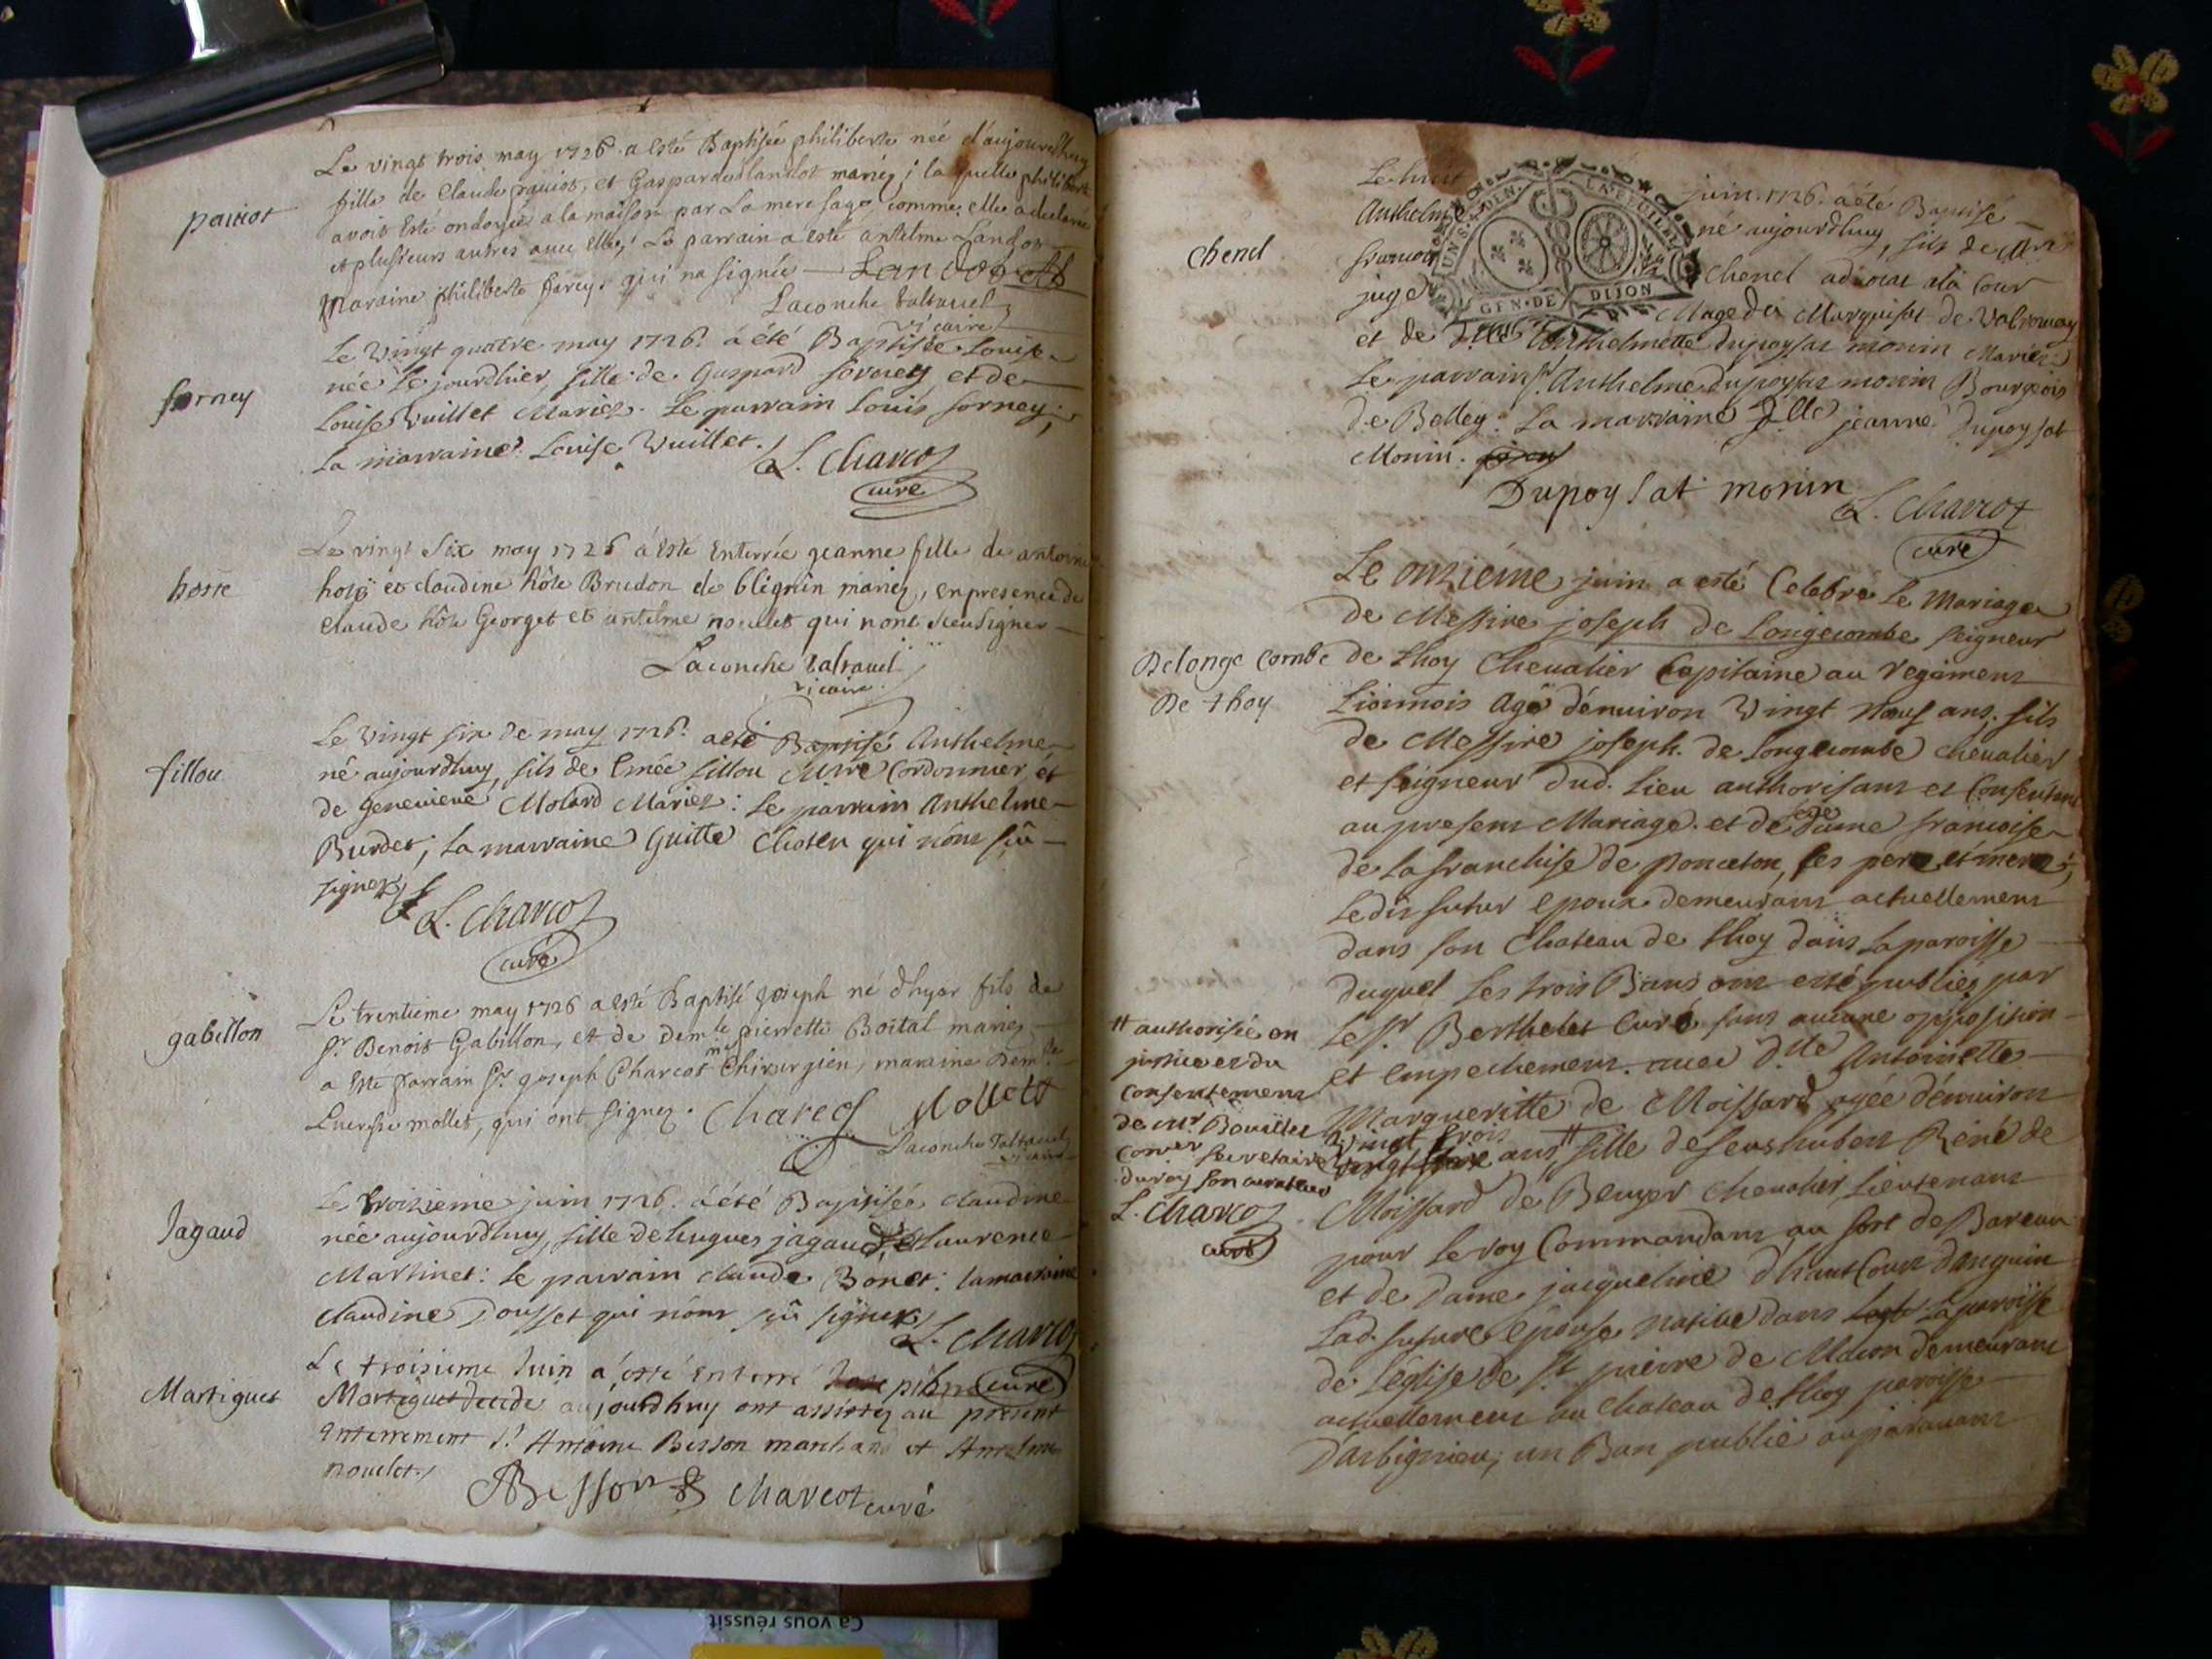 paiiiot
Le vingt trois may 1726 a esté Baptisée philiberte née d'aujourdhuy
fille de Claude et Gasparde landot mariez; laquelle philiberte
avoit esté ondoyée a la maison par La mere sage, comme elle a declaré
et plusieurs autres avec elle; Le parrain a esté antelme Landoz
maraine philiberte farcy qui na signée — Landoz
Laconche Valravel
vicaire
forney
Le Vingt quatre may 1726. à été Baptisée Louise
née le jourdhier, fille de Gaspard forney et de
Louise Vuillet Mariez. Le parrain Louis forney;
La marraine Louise Vuillet.
L. Charcot
curé
hoste
Le vingt Six may 1726 à Esté Enterrée jeanne fille de antoine
et claudine hôte Brudon de blignin mariez, en presence de
Claude hôte Georget et antelme noulet qui nont sceu Signer —
Laconche Valravel
vicaire
fillou
Le Vingt six de may 1726. a été Baptisé Anthelme
né aujourdhuy, fils de fillou cordonnier et
de genevieve Molard Mariez: Le parrain Anthelme
Burdet; La marraine Guitte qui nont sçû —
signer
L. Charcot
curé
gabillon
Le trentieme may 1726 a esté Baptisé joseph né dhyer fils de
Sr. Benoit Gabillon, et de demlle pierrette Boital mariez —
a esté parrain Sr. joseph Charcot me Chirurgien, maraine Demlle
mollet, qui ont signez. Charcot Mollet
Laconche Valravel
vicaire
Jagaud
Le troizieme juin 1726. à été Baptisée claudine
née aujourdhuy, fille de hugues jagaud, et Laurence
Martinet: Le parrain claude Bonet: la marraine
claudine Dousset qui n'ont sçû signer
L. Charcot
curé
Martiguet
Le troisieme Juin a esté enterré
Martiguet decedé aujourdhuy ont assistez au present
enterrement Sr. Antoine Besson marchand et Antelme
noulet
ABesson Charcot curé
UN S. 4 DEN. LA FEUILLE
GEN. DE DIJON
chenel
Le huit juin. 1726. à été Baptisé
Anthelme né aujourdhuy, fils de Mr.
francois chenel advocat à la Cour
juge Mage du Marquisat de Valromey
et de Dlle Anthelmette Dupoysat monin Mariez:
Le parrain Sr. Anthelme Dupoysat monin Bourgeois
de Belley: La marraine Dlle jeanne Dupoysat
Monin.
Dupoysat monin
L. Charcot
curé
De longe combe
De thoy
Le onzième juin a esté Celebré Le Mariage
de Messire joseph de Longecombe seigneur
de thoy Chevalier Capitaine au regiment
Lionnois agé dénuiron Vingt Neuf ans, fils
de Messire joseph de Longecombe chevalier
et seigneur dud. Lieu authorisant et Consentant
au present Mariage et de Dame francoise
de la franchise de Ponceton, ses pere et mere;
Ledit futur epoux demeurant actuellement
dans son Chateau de thoy dans la paroisse
duquel Les trois Bans ont esté publiés par
Le Sr. Berthelet Curé sans aucune opposition
et empechement. avec dlle Antoinette
Margueritte de Moissard agée dénuiron
Vingt trois
ans # fille de feu hubert René de
Moissard de Chevalier Lieutenant
pour Le roy Commandant au fort de Bareau
et de Dame jacqueline d'hautCourt Danguin
Lad. future épouse native dans La paroisse
de Léglise de St. pierre de Macon demeurant
actuellement au chateau de thoy paroisse
Darbignieu; un Ban publié auparavant
# authorisée en
justice et du
Consentement
de mr Bouillet
Secretaire
du roy son curateur
L. Charcot
curé
Ça vous réussit